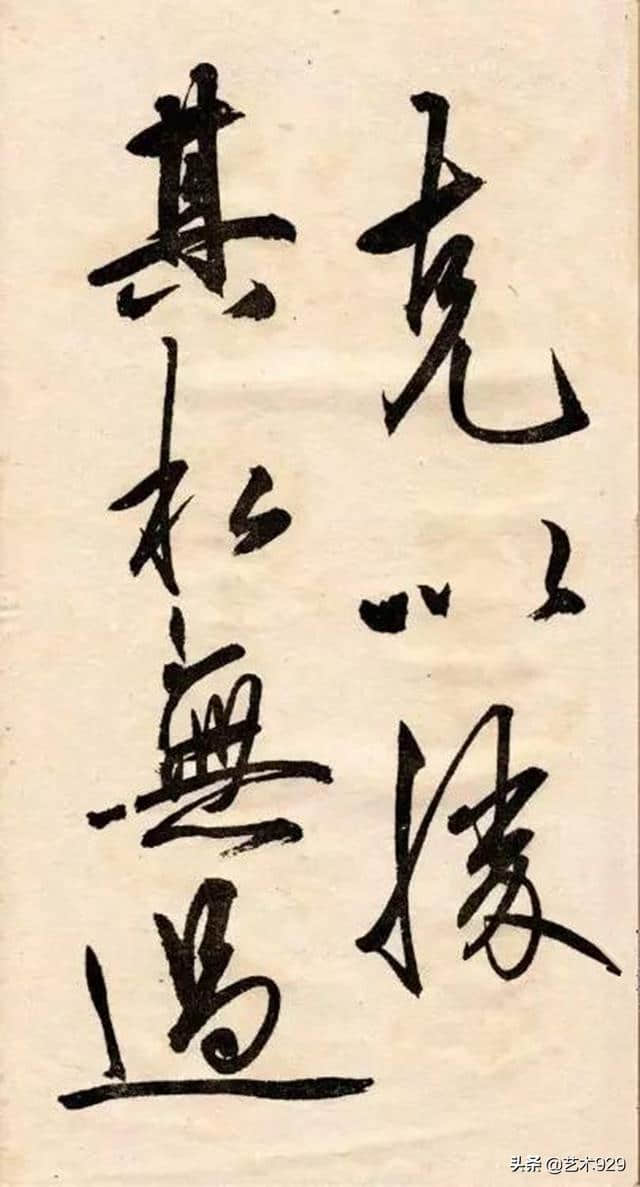 克以勝
其私無過
头条 @艺术929